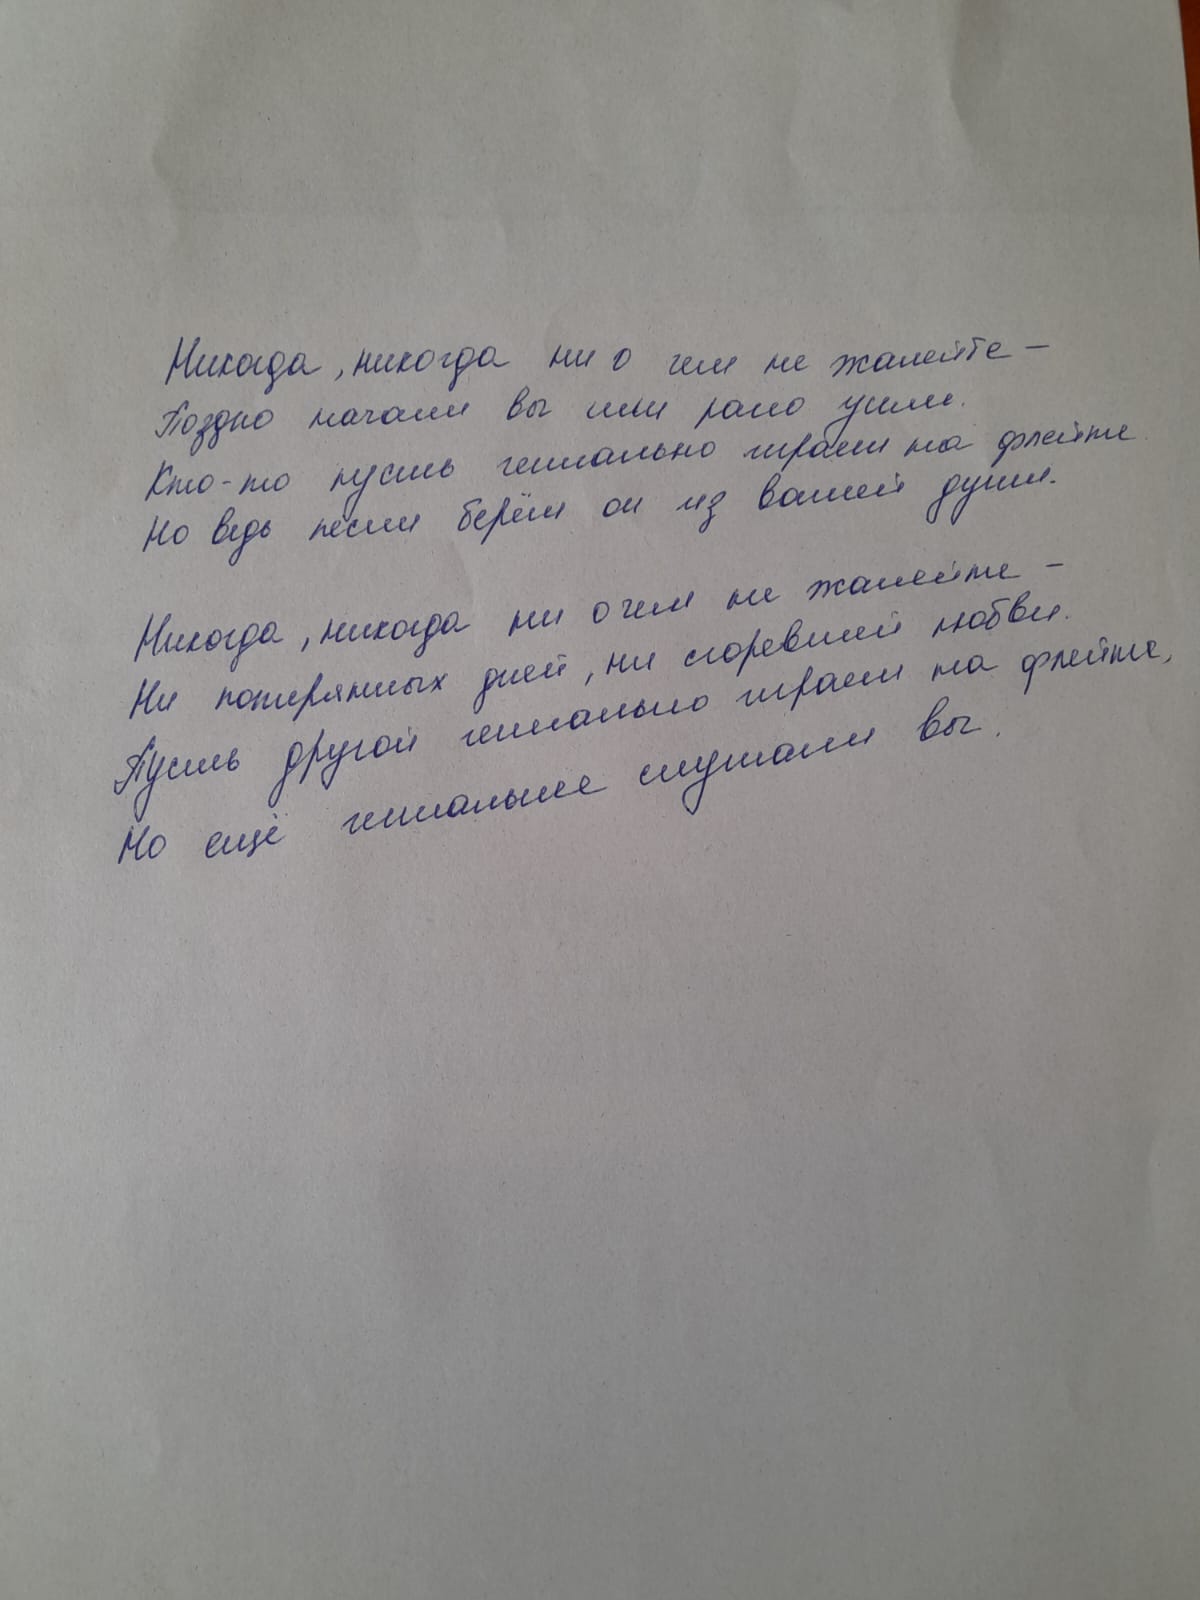 Никогда, никогда ни о чем не жалейте –
Поздно начали вы или рано ушли.
Кто-то пусть гениально играет на флейте
Но ведь песни берёт он из вашей души.
Никогда, никогда ни о чем не жалейте –
Ни потерянных дней, ни сгоревшей любви.
Пусть другой гениально играет на флейте,
Но ещё гениальнее слушали вы.